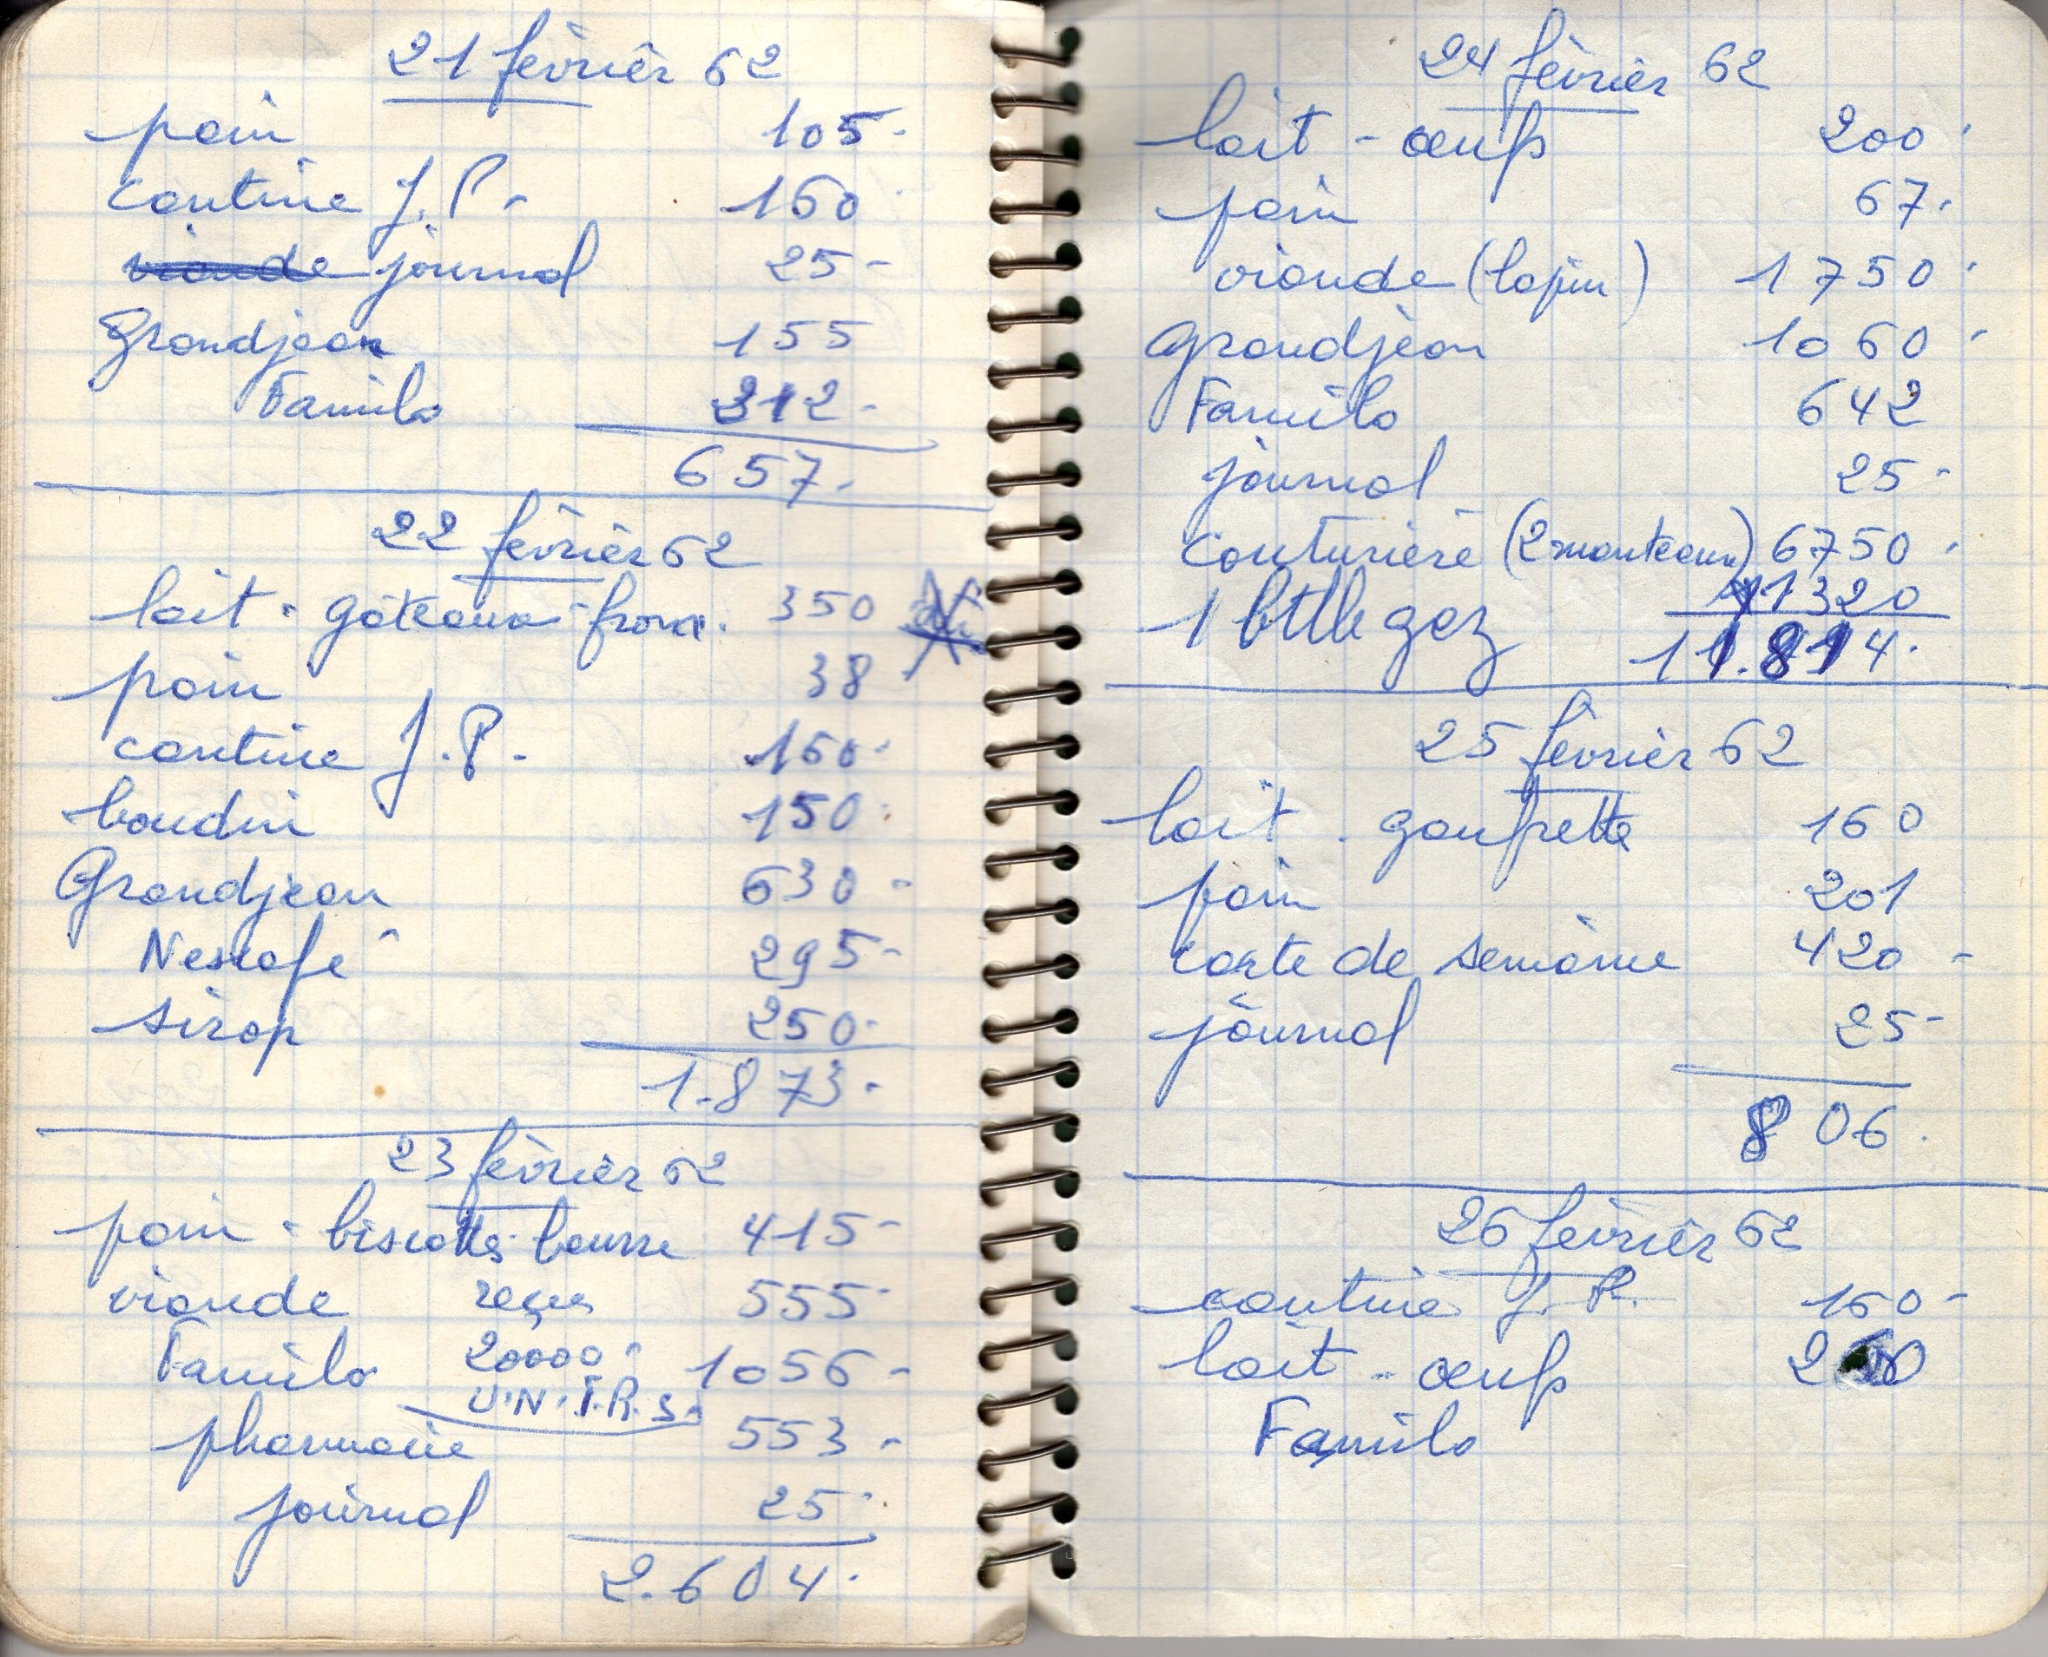 21 février 62
pain 105.
cantine J.P. 160
viande journal 25-
Grandjean 155
Familo 312-
657.
22 février 62
lait - gâteaux - from. 350
pain 38
cantine J.P. 160.
boudin 150.
Grandjean 630-
Nescafé 295-
sirop 250.
1.873.
23 février 62
pain - biscottes - beurre 415-
viande 555-
reçu
Familo 1056-
20000
U.N.I.R.S.
pharmacie 553-
journal 25-
2.604.
24 février 62
lait - œufs 200
pain 67.
viande (lapin) 1750
Grandjean 1060
Familo 642
journal 25-
couturière (2 manteaux) 6750
1 btlle gaz 1320
11.814.
25 février 62
lait - gaufrette 160
pain 201
carte de semaine 420-
journal 25-
806.
26 février 62
cantine J.P. 160-
lait - œufs
Familo